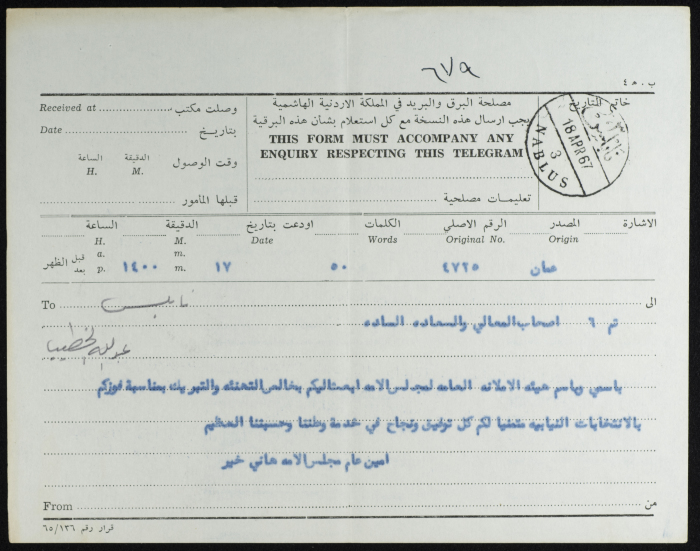 ٦٧٩
ب . ه ٤
Received at وصلت مكتب
مصلحة البرق والبريد في المملكة الاردنية الهاشمية
خاتم التاريخ
Date بتاريخ
يجب ارسال هذه النسخة مع كل استعلام بشأن هذه البرقية
THIS FORM MUST ACCOMPANY ANY
ENQUIRY RESPECTING THIS TELEGRAM
18 APR 67
3
NABLUS
الساعة الدقيقة وقت الوصول
H. M.
قبلها المأمور
تعليمات مصلحية
الاشارة المصدر الرقم الاصلي الكلمات اودعت بتاريخ الدقيقة الساعة
Origin Original No. Words Date M. H.
قبل الظهر بعد
a. m.
p. m.
عمان ٤٧٢٥ ٥٠ ١٧ ١٤٠٠
To نابلس الى
تم ٦ اصحاب المعالي والسعاده الساده
باسمي وباسم هيئه الامانه العامه لمجلس الامه ابعث اليكم بخالص التهنئه والتبريك بمناسبة فوزكم
بالانتخابات النيابيه متمنيا لكم كل توفيق ونجاح في خدمة وطننا وحسيننا العظيم
امين عام مجلس الامه هاني خير
From من
قرار رقم ٦٥/١٣٦